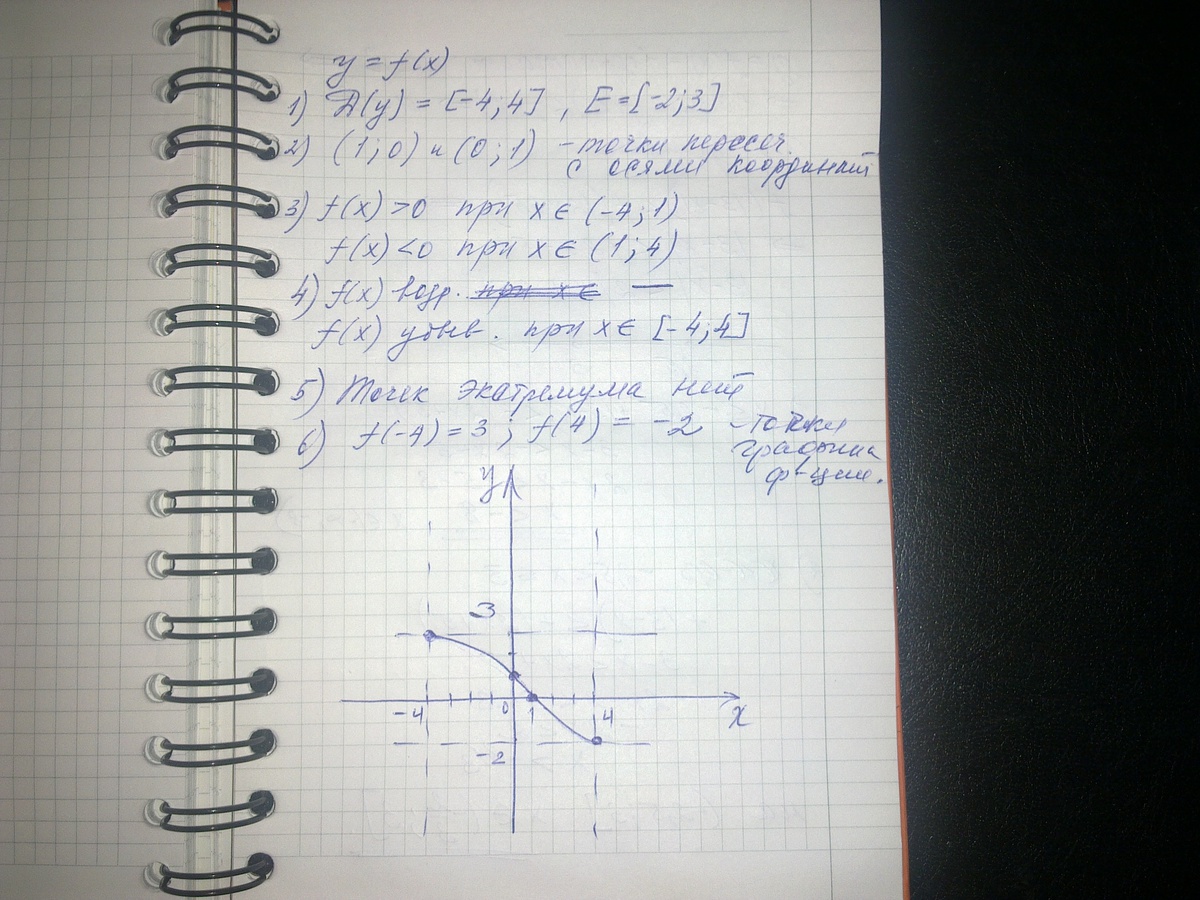 y = f(x)
1) D(y) = [-4; 4] , E = [-2; 3]
2) (1; 0) и (0; 1) - точки пересеч.
с осями координат
3) f(x) > 0 при x ∈ (-4; 1)
f(x) < 0 при x ∈ (1; 4)
4) f(x) возр. при x ∈ —
f(x) убыв. при x ∈ [-4; 4]
5) Точек экстремума нет
6) f(-4) = 3 ; f(4) = -2 - точки
графика
ф-ции.
y
3
-4 0 1 4
x
-2